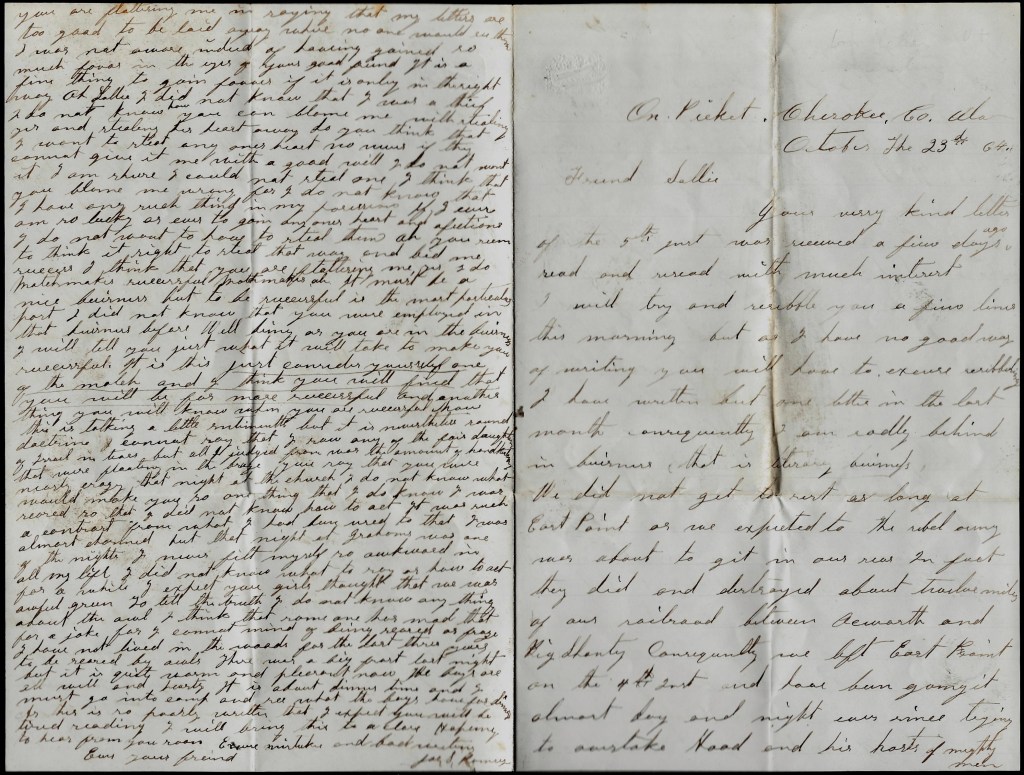 you are flattering me in saying that my letters are
too good to be laid away where no one would see them
I was not aware indeed of having gained so
much favor in the eyes of your good friend It is a
fine thing to gain favors if it is only in the right
way Oh Sallie I did not know that I was a thief
I do not know how you can blame me with stealing
yes and stealing his heart away do you think that
I want to steal any ones heart no never if they
cannot give it me with a good will I do not want
it. I am shure I could not steal one I think that
you blame me wrong for I do not know that
I have any such thing in my possession If I ever
am so lucky as ever to gain any ones heart and afections
I do not want to have to steal them do you
to think it right to steal that way and bid me
success I think that you are flattering me
matchmaker successful It must be a
nice buirness but to be successful is the most particular
part I did not know that you were employed in
that buirness before Well as you are in the buirness
I will tell you just what it will take to make you
successful. It is this just consider yourself one
of the match and I think you will find that
you will be far more successful and another
thing you will know when you are successful
this is talking a little but it is sound
doctrine I cannot say that I saw any of the fair daughters
of but all I judged from was the amount of handkerchiefs
that were floating in the breeze you say that you were
nearly crazy that night at the church I do not know what
would make you so one thing that I do know I was
scared so that I did not know how to act It was such
a contrast from what I had been used to that I was
almost but that night at Grahams was one
of the nights I never felt myself so awkward in
all my life I did not know what to say or how to act
for a while I expect you girls thought that we was
awful green To tell the truth I do not know any thing
about the owl I think that some one has mad that
for a joke for I cannot mind of being scared as
I have not lived in the woods for the last three years
to be scared by owls There was a big frost last night
but it is quite warm and pleasant now The boys are
all well and hearty It is about dinner time and I
must go into camp and see what the boys have for dinner
as this is so poorly written that I expect you will be
tired reading I will bring this to a close Hopeing
to hear from you soon Excuse mistakes and bad writing
Ever your friend
Jas. S.
On Picket, Cherokee, Co. Ala
October The 23rd 64.
Friend Sallie
Your verry kind letter
of the 5th inst was received a few days ago
read and reread with much interest
I will try and scribble you a few lines
this morning but as I have no good way
of writing you will have to excuse scribbling
I have written but one letter in the last
month consequently I am sadly behind
in buirness, that is literary buirness,
We did not get to rest as long at
East Point as we expected to the rebel army
was about to git in our rear In fact
they did and destroyed about twelve miles
of our railroad between Acworth and
Consequently we left East Point
on the 4th Inst and have been going it
almost day and night ever since trying
to overtake Hood and his hosts of mighty
men